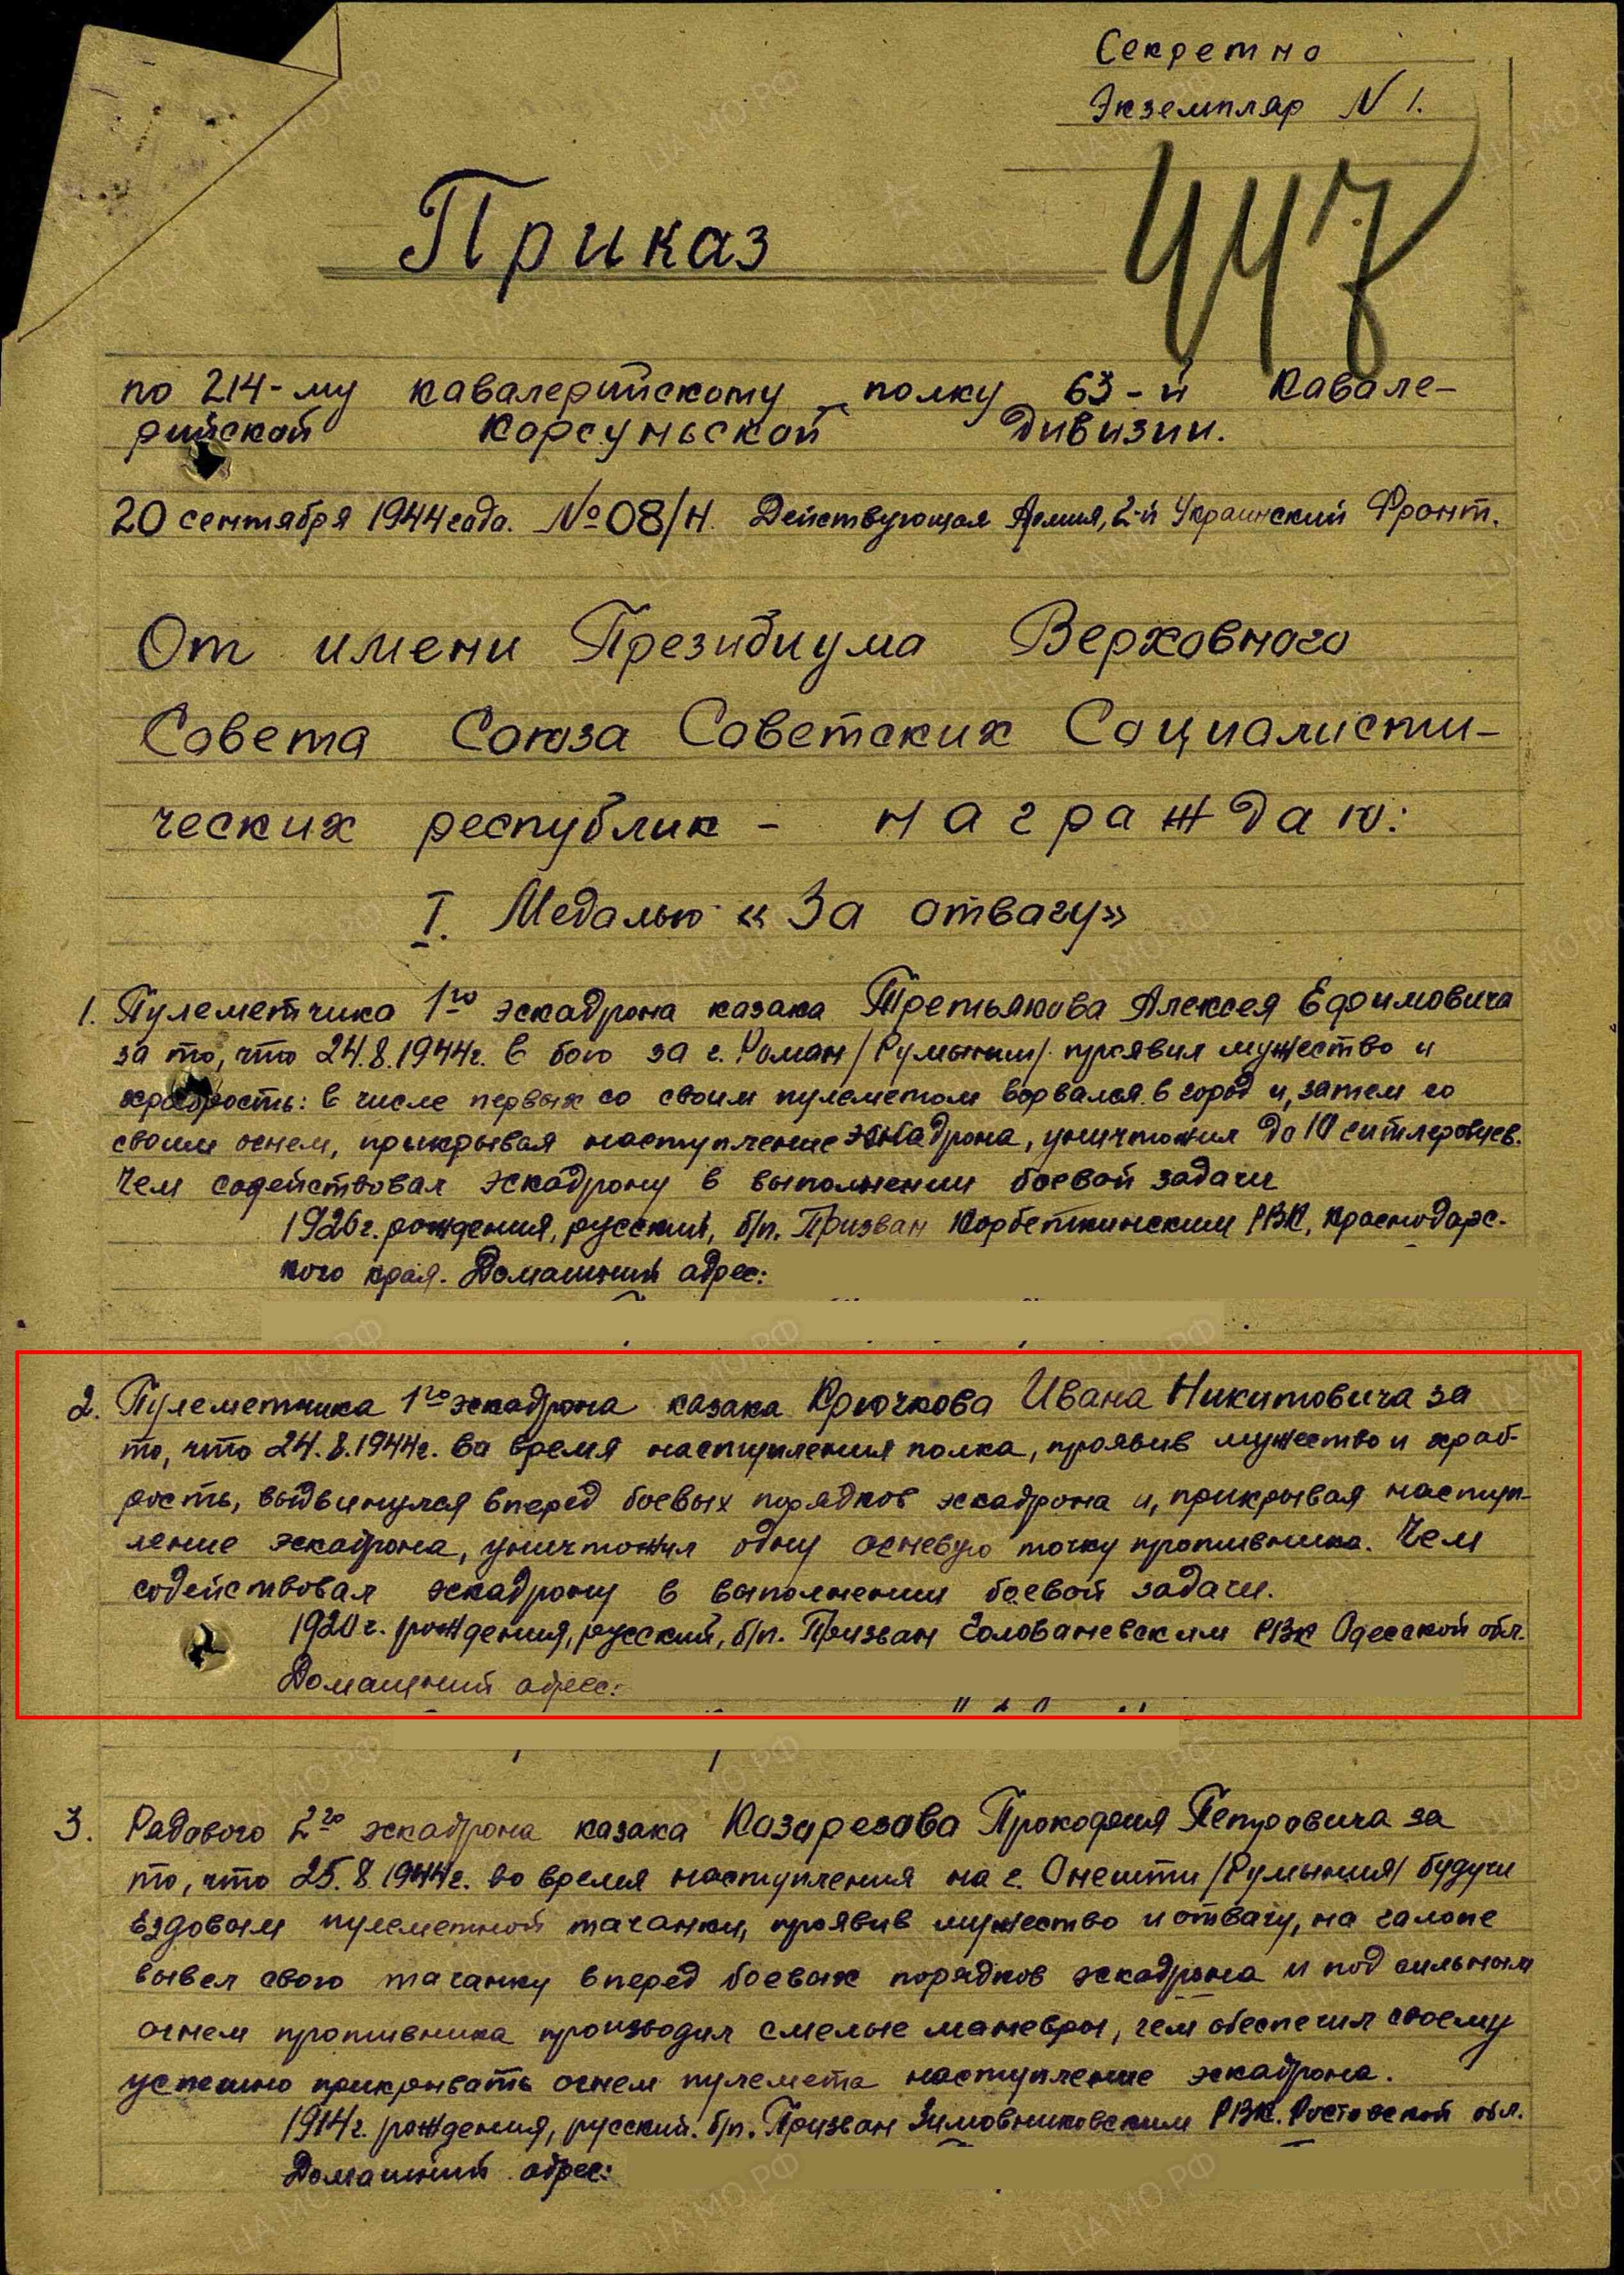 Секретно
Экземпляр N 1.
447
Приказ
по 214-му кавалерийскому полку 63-й Кавале-
рийской Корсуньской Дивизии.
20 сентября 1944 года. № 08/н. Действующая Армия, 2-й Украинский Фронт.
От имени Президиума Верховного
Совета Союза Советских Социалисти-
ческих республик - награждаю:
I. Медалью «За отвагу»
1. Пулеметчика 1го эскадрона казака Третьякова Алексея Ефимовича
за то, что 24.8.1944г. в бою за г. Роман /Румыния/ проявил мужество и
храбрость: в числе первых со своим пулеметом ворвался в город и, затем со
своим огнем, прикрывая наступление эскадрона, уничтожил до 10 гитлеровцев.
Чем содействовал эскадрону в выполнении боевой задачи
1926г. рождения, русский, б/п. Призван РВК, Краснодарс-
кого края. Домашний адрес:
2. Пулеметчика 1го эскадрона казака Крючкова Ивана Никитовича за
то, что 24.8.1944г. во время наступления полка, проявив мужество и храб-
рость, выдвинулся вперед боевых порядков эскадрона и, прикрывая наступ-
ление эскадрона, уничтожил одну огневую точку противника. Чем
содействовал эскадрону в выполнении боевой задачи.
1920г. рождения, русский, б/п. Призван Голованевским РВК Одесской обл.
Домашний адрес:
3. Рядового 2го эскадрона казака Казарезова Прокофия Петровича за
то, что 25.8.1944г. во время наступления на г. Онешти /Румыния/ будучи
ездовым пулеметной тачанки, проявив мужество и отвагу, на галопе
вывел свою тачанку вперед боевых порядков эскадрона и под сильным
огнем противника производил смелые маневры, чем обеспечил своему
успешно прикрывать огнем пулемета наступление эскадрона.
1914г. рождения, русский. б/п. Призван Зимовниковским РВК. Ростовской обл.
Домашний адрес:
ЦА МО РФ